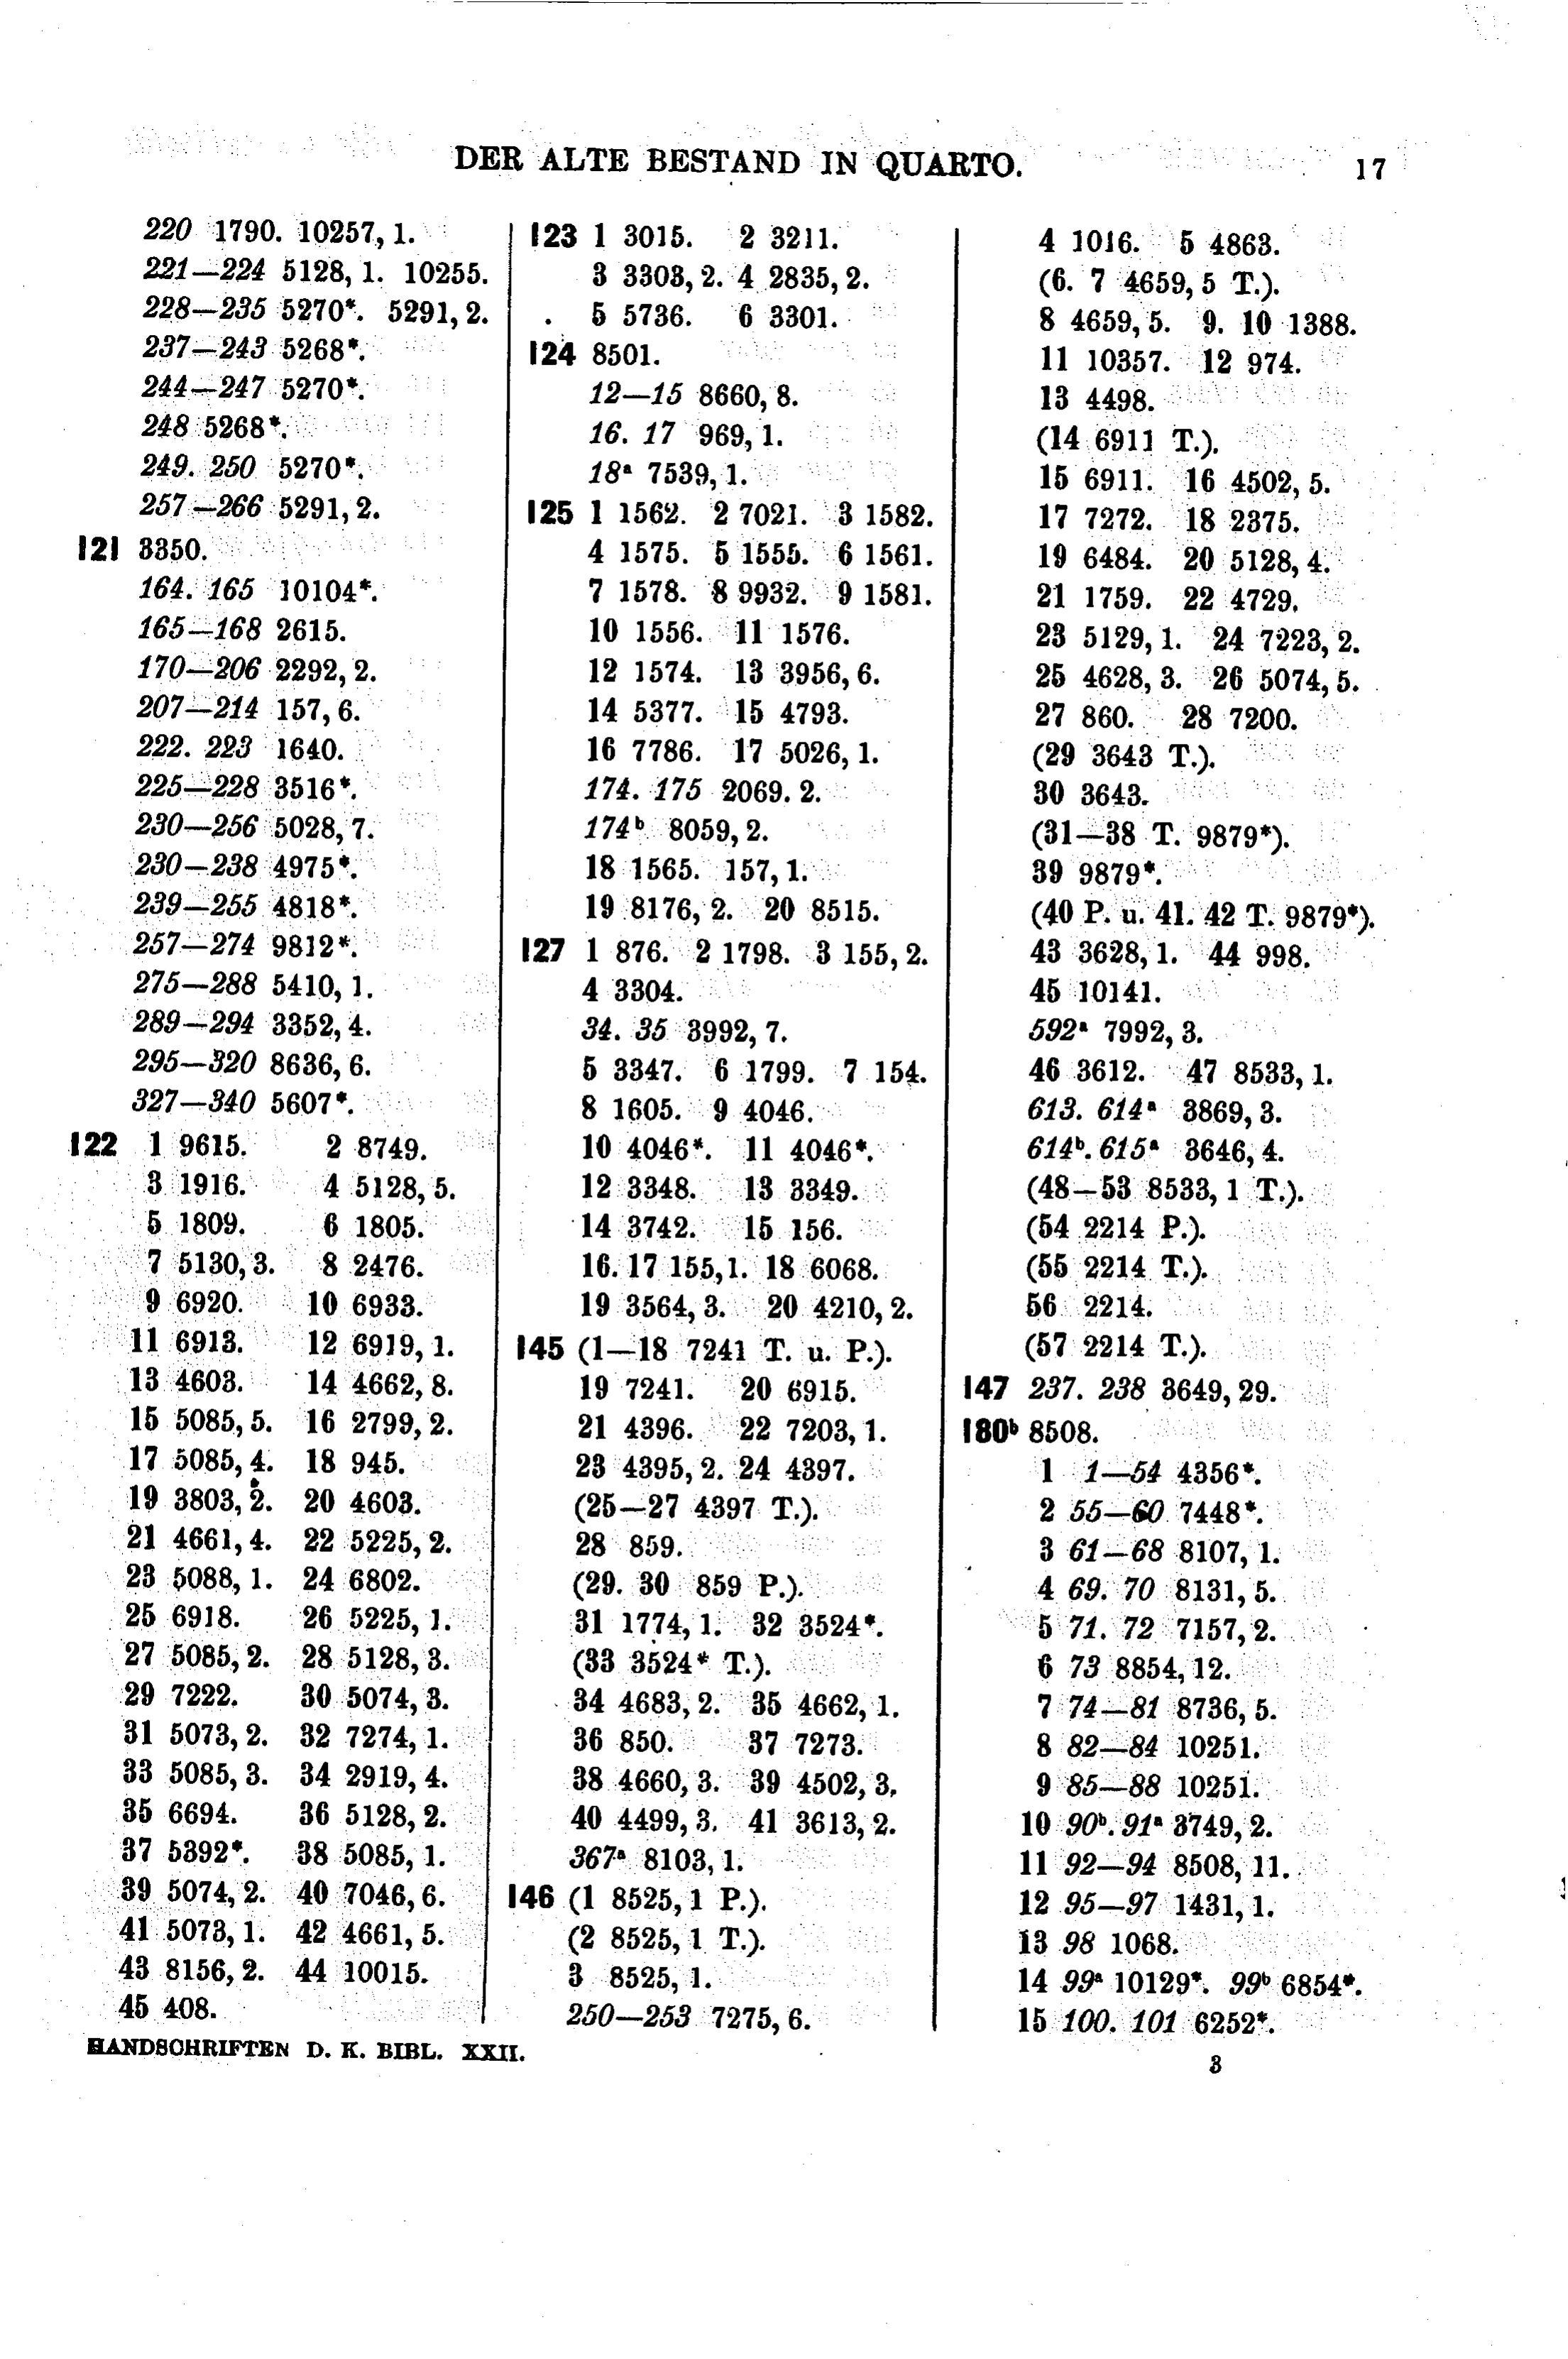 DER ALTE BESTAND IN QUARTO.
17
220 1790. 10257, 1.
221—224 5128, 1. 10255.
228—235 5270*. 5291, 2.
237—243 5268*.
244—247 5270*.
248 5268*.
249. 250 5270*.
257—266 5291, 2.
121 3350.
164. 165 10104*.
165—168 2615.
170—206 2292, 2.
207—214 157, 6.
222. 223 1640.
225—228 3516*.
230—256 5028, 7.
230—238 4975*.
239—255 4818*.
257—274 9812*.
275—288 5410, 1.
289—294 3352, 4.
295—320 8636, 6.
327—340 5607*.
122 1 9615. 2 8749.
3 1916. 4 5128, 5.
5 1809. 6 1805.
7 5130, 3. 8 2476.
9 6920. 10 6933.
11 6913. 12 6919, 1.
13 4603. 14 4662, 8.
15 5085, 5. 16 2799, 2.
17 5085, 4. 18 945.
19 3803, 2. 20 4603.
21 4661, 4. 22 5225, 2.
23 5088, 1. 24 6802.
25 6918. 26 5225, 1.
27 5085, 2. 28 5128, 3.
29 7222. 30 5074, 3.
31 5073, 2. 32 7274, 1.
33 5085, 3. 34 2919, 4.
35 6694. 36 5128, 2.
37 5392*. 38 5085, 1.
39 5074, 2. 40 7046, 6.
41 5073, 1. 42 4661, 5.
43 8156, 2. 44 10015.
45 408.
123 1 3015. 2 3211.
3 3303, 2. 4 2835, 2.
5 5736. 6 3301.
124 8501.
12—15 8660, 8.
16. 17 969, 1.
18ᵃ 7539, 1.
125 1 1562. 2 7021. 3 1582.
4 1575. 5 1555. 6 1561.
7 1578. 8 9932. 9 1581.
10 1556. 11 1576.
12 1574. 13 3956, 6.
14 5377. 15 4793.
16 7786. 17 5026, 1.
174. 175 2069. 2.
174ᵇ 8059, 2.
18 1565. 157, 1.
19 8176, 2. 20 8515.
127 1 876. 2 1798. 3 155, 2.
4 3304.
34. 35 3992, 7.
5 3347. 6 1799. 7 154.
8 1605. 9 4046.
10 4046*. 11 4046*.
12 3348. 13 3349.
14 3742. 15 156.
16. 17 155, 1. 18 6068.
19 3564, 3. 20 4210, 2.
145 (1—18 7241 T. u. P.).
19 7241. 20 6915.
21 4396. 22 7203, 1.
23 4395, 2. 24 4397.
(25—27 4397 T.).
28 859.
(29. 30 859 P.).
31 1774, 1. 32 3524*.
(33 3524* T.).
34 4683, 2. 35 4662, 1.
36 850. 37 7273.
38 4660, 3. 39 4502, 3.
40 4499, 3. 41 3613, 2.
367ᵃ 8103, 1.
146 (1 8525, 1 P.).
(2 8525, 1 T.).
3 8525, 1.
250—253 7275, 6.
4 1016. 5 4863.
(6. 7 4659, 5 T.).
8 4659, 5. 9. 10 1388.
11 10357. 12 974.
13 4498.
(14 6911 T.).
15 6911. 16 4502, 5.
17 7272. 18 2375.
19 6484. 20 5128, 4.
21 1759. 22 4729.
23 5129, 1. 24 7223, 2.
25 4628, 3. 26 5074, 5.
27 860. 28 7200.
(29 3643 T.).
30 3643.
(31—38 T. 9879*).
39 9879*.
(40 P. u. 41. 42 T. 9879*).
43 3628, 1. 44 998.
45 10141.
592ᵃ 7992, 3.
46 3612. 47 8533, 1.
613. 614ᵃ 3869, 3.
614ᵇ. 615ᵃ 3646, 4.
(48—53 8533, 1 T.).
(54 2214 P.).
(55 2214 T.).
56 2214.
(57 2214 T.).
147 237. 238 3649, 29.
180ᵇ 8508.
1 1—54 4356*.
2 55—60 7448*.
3 61—68 8107, 1.
4 69. 70 8131, 5.
5 71. 72 7157, 2.
6 73 8854, 12.
7 74—81 8736, 5.
8 82—84 10251.
9 85—88 10251.
10 90ᵇ. 91ᵃ 3749, 2.
11 92—94 8508, 11.
12 95—97 1431, 1.
13 98 1068.
14 99ᵃ 10129*. 99ᵇ 6854*.
15 100. 101 6252*.
HANDSCHRIFTEN D. K. BIBL. XXII.
3